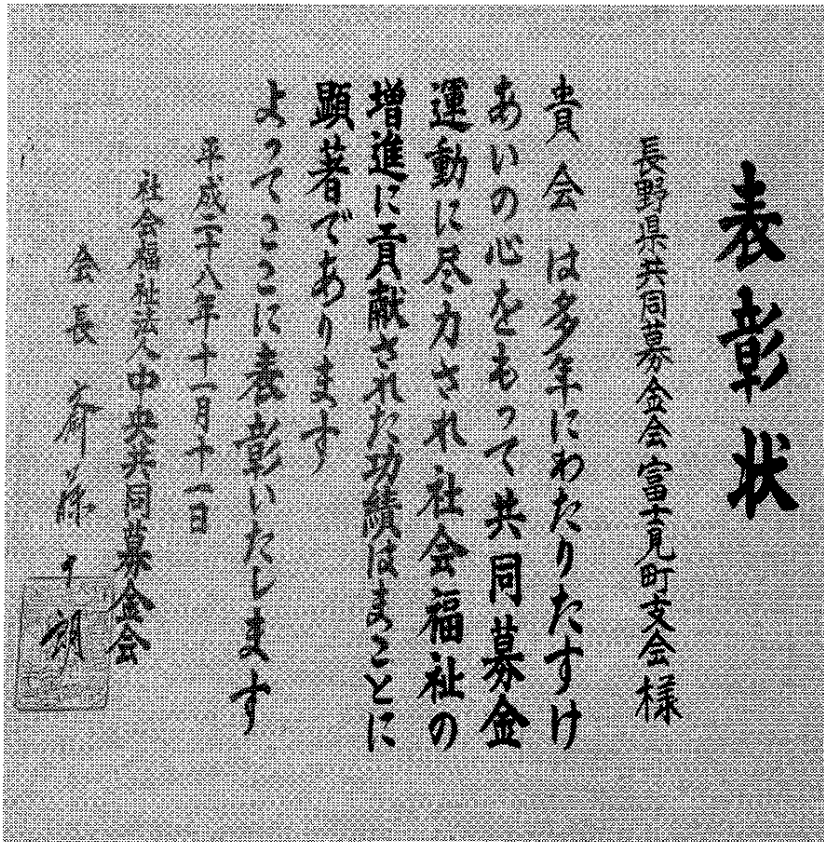 表彰状
長野県共同募金会富士見町支会様
貴会は多年にわたりたすけ
あいの心をもって共同募金
運動に尽力され社会福祉の
増進に貢献された功績はまことに
顕著であります
よってここに表彰いたします
平成二十八年十一月十一日
社会福祉法人中央共同募金会
会長 斎藤十朗